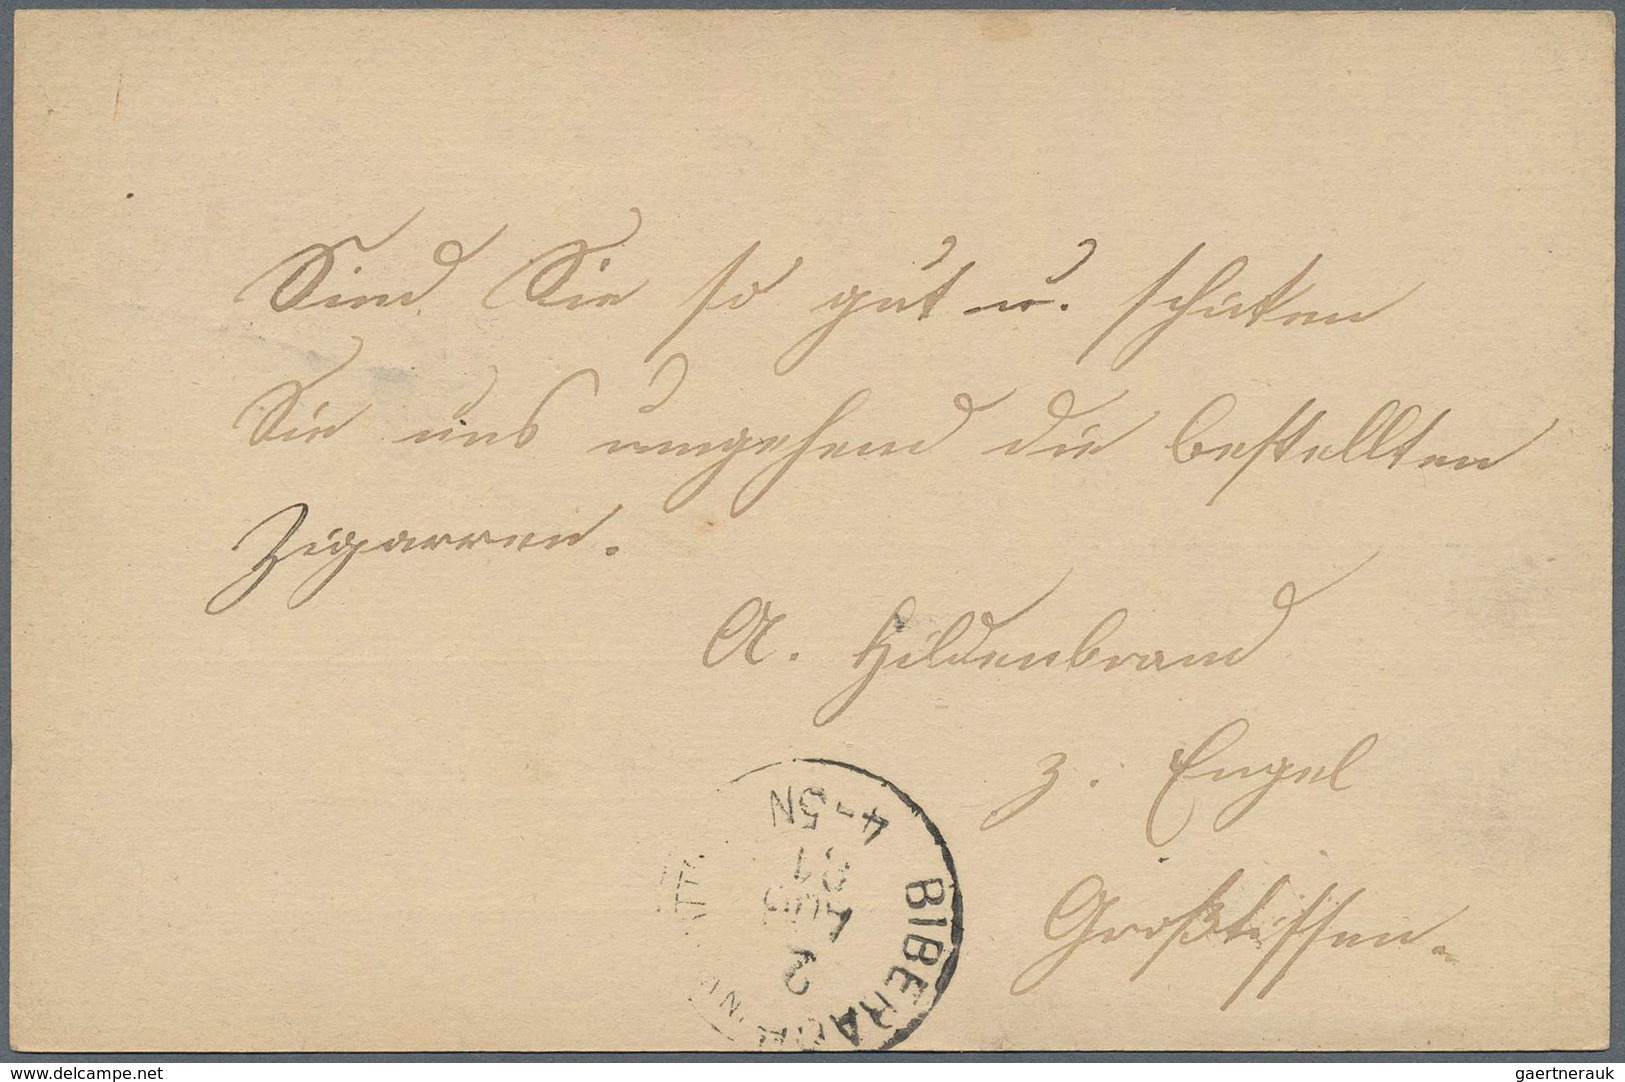 Sind Sie so gut u. schicken
Sie uns umgehend die bestellten
Zigarren.
A. Hildenbrand
z. Engel
Großtissen.
BIBERACH
2
AUG
01
4-5N
www.delcampe.net
gaertnerauk